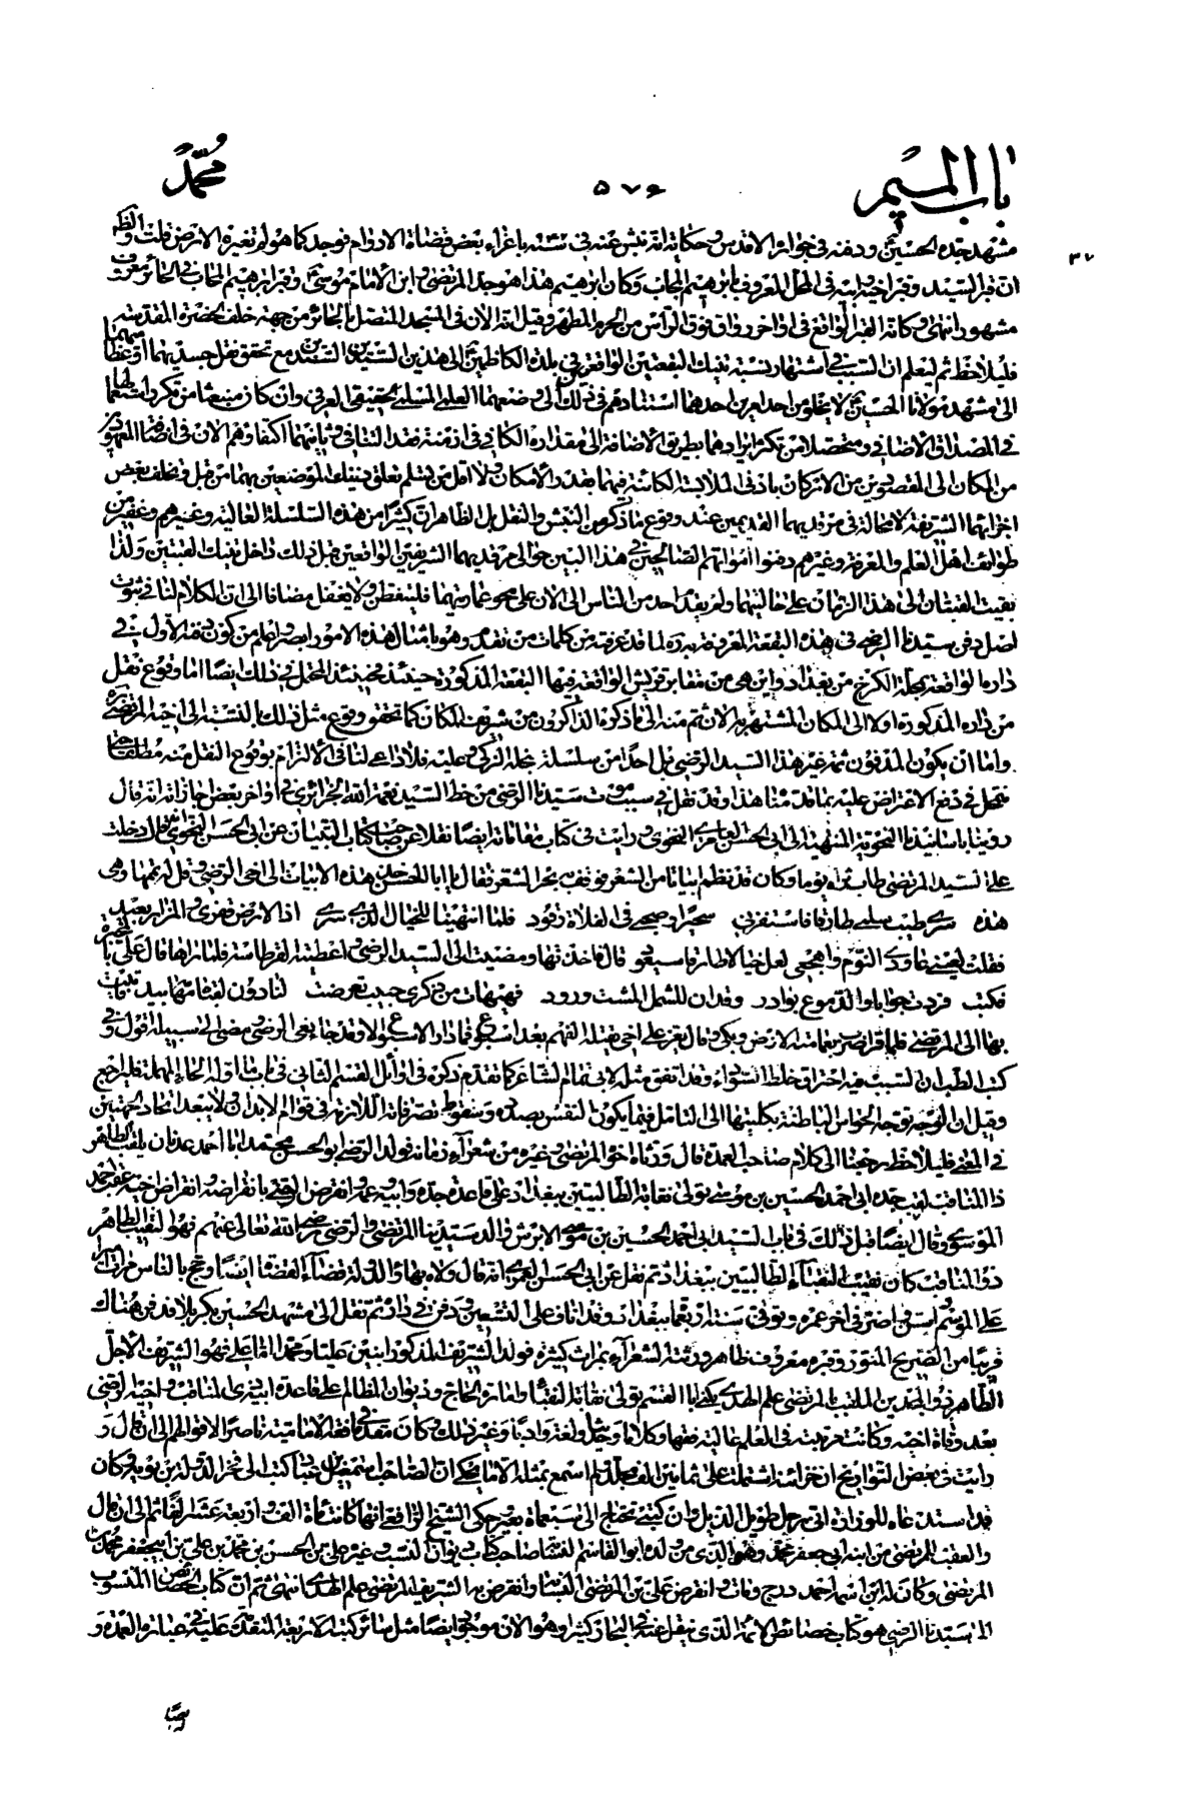 باب الميم
٥٧٦
محمد
٣٧
مشهد جده الحسين ودفنه في جوار الاقدس وحكاية انه نبش عنه في سنة باغراء بعض قضاة الاروام فوجد كما هو لم تغيره الارض قلت والظ
ان قبر السيد وقبر اخيه وابيه في المحل المعروف بابرهيم المجاب وكان ابرهيم هذا هو جد المرتضى وابن الامام موسى وقبر ابرهيم المجاب في الحائر معروف
مشهور انتهى وكانه القبر الواقع في اواخر رواق فوق الراس من الحرم المطهر وقيل انه الان في المسجد المتصل بالحائر من جهة خلف الحضرة المقدسة
فليلاحظ ثم ليعلم ان السبب في اشتهار نسبة تينك البقعتين الواقعتين في بلدة الكاظمين الى هذين السيدين السندين مع تحقق نقل جسديهما او عظامهما
الى مشهد مولانا الحسين لا يخلو من احد امرين احدهما استنادهم في ذلك الى وضعهما العلمي
في المصداق الاضافي
من المكان الى المقصودين من الاركان بادنى الملابسة الكائنة فيهما بقدر الامكان ولا اقل من تعلق ذينك الموضعين بهما من قبل وتخلف بعض
اجزائهما الشريفة لا محالة في مرقديهما القديمين عند وقوع ما ذكر من النبش والنقل بل الظاهر ان كثيرا من هذه السلسلة العالية وغيرهم وغفير من
طوائف اهل العلم والمعرفة وغيرهم دفنوا امواتهم الصالحين في هذا البين حوالي مرقديهما الشريفين الواقعين قبل ذلك داخل تينك القبتين ولذا
بقيت القبتان الى هذا الزمان على حالتيهما ولم يقدم احد من الناس الى الان على محو علاميتهما فليتفطن ولا يغفل مضافا الى ان الكلام لنا في ثبوت
اصل دفن سيدنا الرضي في هذه البقعة المعروفة به لما قد عرفته من كلمات من تقدم وهو بامثال هذه الامور ابصر واعلم من كون دفنه الاول في
داره الواقعة بمحلة الكرخ من بغداد واين هي من مقابر قريش الواقعة فيها البقعة المذكورة حينئذ فحينئذ المحتمل في ذلك ايضا اما وقوع نقل
من داره المذكورة اولا الى المكان المشتهر به الان ثم منه الى ما ذكره الذاكرون من شريف المكان كما تحقق وقوع مثل ذلك بالنسبة الى اخيه المرتضى
واما ان يكون المدفون ثمة غير هذا السيد الرضي بل احدا من سلسلة نجله الزكي وعليه فلا داعي لنا في الالتزام بوقوع النقل منه مطلقا
في دفع الاعتراض عليه بما قدمنا هذا وقد نقل في سبب موت سيدنا الرضي من خط السيد نعمة الله الجزائري في اواخر بعض اجازاته انه قال
روينا باسانيدنا النحوية المنتهية الى ابي الحسن العامري النحوي ورايت في كتاب مقاماته ايضا نقلا عن صاحب كتاب التبيان عن ابي الحسن النحوي انه قال دخلت
على السيد المرتضى طاب ثراه يوما وكان قد نظم ابياتا من الشعر فوقف به بحر الشعر فقال يا ابا الحسن خذ هذه الابيات الى اخي الرضي وقل له تممها وهي
هذه سرى طيف سلمى طارقا فاستفزني سحيرا وصحبي في الفلاة رقود فلما انتهينا للخيال الذي سرى اذا الارض قفرى والمزار بعيد
فقلت لعيني عاودي النوم واهجعي لعل خيالا طارقا سيعود قال فاخذتها ومضيت الى السيد الرضي واعطيته القرطاسة فلما رآها قال علي بالمحبرة
فكتب فردت جوابا والدموع بوادر وقد آن للشمل المشت ورود فهيهات من ذكرى حبيب تعرضت لنا دون لقياه مهامه بيد فاتيت
بها الى المرتضى فلما قراها ضرب بعمامته الارض وبكى وقال يعز علي اخي يقتله الفهم بعد اسبوع فما دار الاسبوع الا وقد جاء نعي الرضي ومضى الى سبيله اقول وفي
كتب الطب ان السبب فيه احتراق خلط السوداء وقد اتفق مثله لابي تمام الشاعر كما تقدم ذكره في اوائل القسم الثاني في باب ما اوله الحاء المهملة فليراجع
وقيل ان الوجه توجه الحواس الباطنة بكليتها الى التامل فيما يكون النفس بصدده وسقوط تصرفاته اللازمة في قوام الابدان ولا يبعد اتحاد الجهتين
في المعنى فليلاحظ رجعنا الى كلام صاحب العمدة قال ورثاه اخوه المرتضى وغيره من شعراء زمانه فولد الرضي ابو الحسن محمد ابا احمد عدنان يلقب الطاهر
ذا المناقب لقب جده ابي احمد الحسين بن موسى تولى نقابة الطالبيين ببغداد على قاعدة جده وابيه وعمه وانقرض الرضي بانقراضه وانقرض اخيه عقب احمد
الموسوي وقال ايضا قبل ذلك في باب السيد ابي احمد الحسين بن موسى الابرش والد سيدينا المرتضى والرضي رضي الله تعالى عنهم فهو النقيب الطاهر
ذو المناقب كان نقيب النقباء الطالبيين ببغداد ثم نقل عن ابي الحسن العمري انه قال ولاه بهاء الدولة قضاء القضاة ايضا وحج بالناس مرات
على الموسم اسن واضر في اخر عمره وتوفي سنة اربعمائة ببغداد وقد اناف على التسعين ودفن في داره ثم نقل الى مشهد الحسين بكربلا فدفن هناك
قريبا من الضريح المنور وقبره معروف ظاهر ورثته الشعراء بمراث كثيرة فولد الشريف المذكور ابنين عليا ومحمدا اما علي فهو الشريف الاجل
الطاهر ذو المجدين الملقب بالمرتضى علم الهدى يكنى ابا القسم تولى نقابة النقباء وامارة الحاج وديوان المظالم على قاعدة ابيه ذي المناقب واخيه الرضي
بعد وفاة اخيه وكانت مرتبته في العلم عالية فقها وكلاما وحديثا ولغة وادبا وغير ذلك وكان مقدما في فقه الامامية ناصرا لاقوالهم الى ان قال و
رايت في بعض التواريخ ان خزانته اشتملت على ثمانين الف مجلد ولم اسمع بمثله الا ما يحكى ان الصاحب اسمعيل بن عباد كتب الى فخر الدولة بن بويه وكان
قد استدعاه للوزارة اني رجل طويل الذيل وان كتبي تحتاج الى سبعمائة بعير وحكى الشيخ الرافعي انها كانت مائة الف واربعة عشر الفا ثم الى ان قال
والعقب للمرتضى من ابنه ابي جعفر محمد وهو الذي من ولده ابو القاسم النسابة صاحب كتاب ديوان النسب وغيره علي بن الحسن بن محمد بن علي بن ابي جعفر محمد بن
المرتضى وكان له ابن اسمه احمد درج ومات وانقرض علي بن المرتضى النسابة وانقرض به الشريف المرتضى علم الهدى انتهى ثم ان كتاب الخصائص المنسوب
الى سيدنا الرضي هو كتاب خصائص الائمة الذي ينقل عنه في البحار كثيرا وهو الان موجود ايضا مثل سائر كتبه الاربعة المتقدمة عليه في عبارة العمدة و